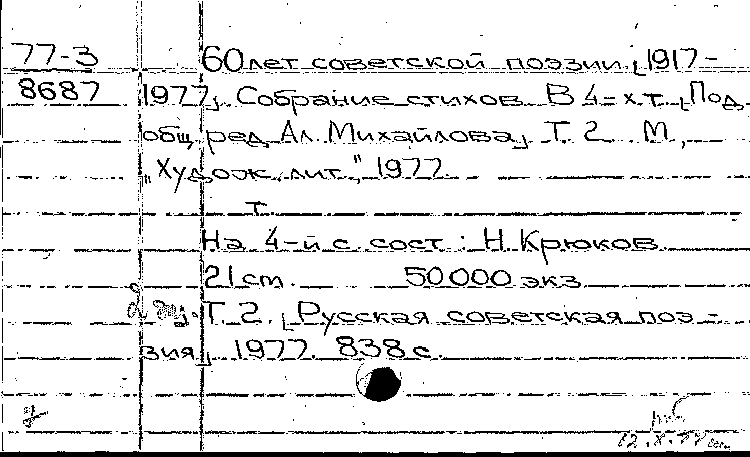 77-3 60 лет советской поэзии [1917-
8687 1977]. Собрание стихов. В 4-х т. [Под
общ. ред. Ал. Михайлова]. Т. 2. М.,
"Худож. лит.", 1977.
т.
На 4-й с. сост.: Н. Крюков.
21 см. 50000 экз.
2 эк. Т. 2. [Русская советская поэ-
зия]. 1977. 838 с.